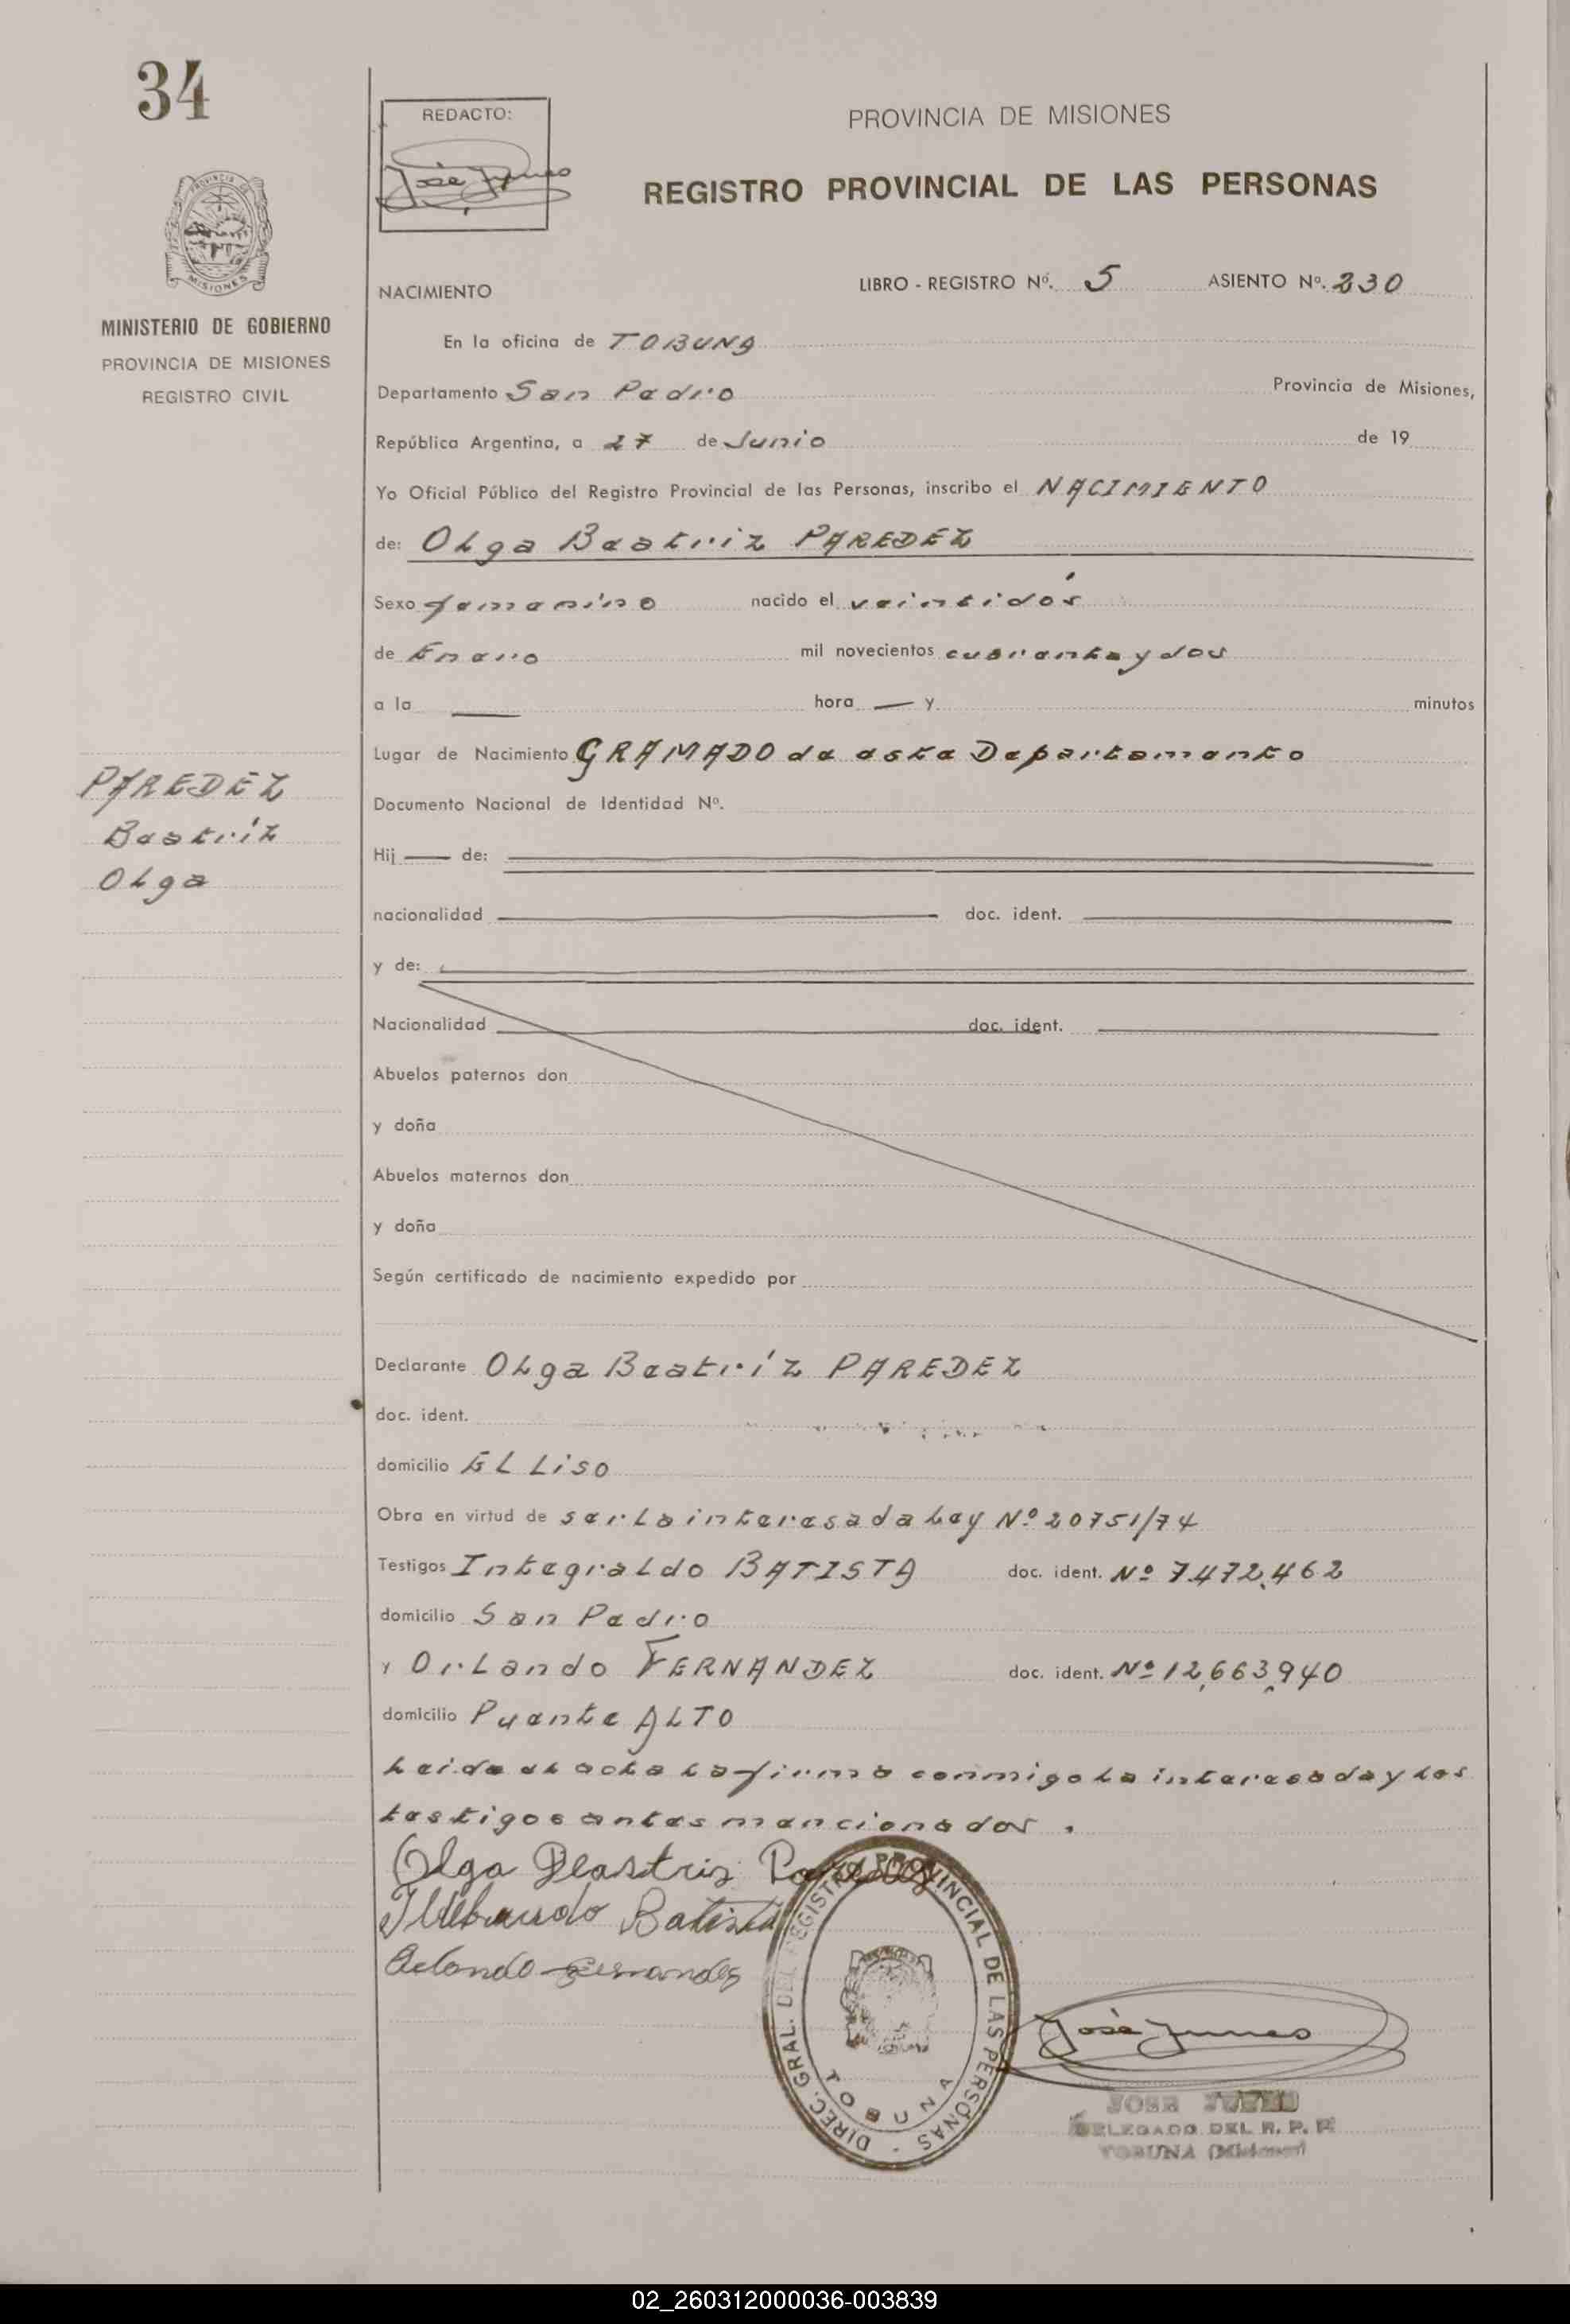 34
REDACTO:
PROVINCIA DE MISIONES
REGISTRO PROVINCIAL DE LAS PERSONAS
MISIONES
MINISTERIO DE GOBIERNO
PROVINCIA DE MISIONES
REGISTRO CIVIL
NACIMIENTO
LIBRO - REGISTRO Nº. 5 ASIENTO Nº. 230
En la oficina de TOBUNA
Departamento San Pedro Provincia de Misiones,
República Argentina, a 27 de Junio de 19
Yo Oficial Público del Registro Provincial de las Personas, inscribo el NACIMIENTO
de: OLga Beatriz PAREDEZ
Sexo femenino nacido el veintidós
de Enero mil novecientos cuarenta y dos
a la — hora — y minutos
Lugar de Nacimiento GRAMADO de este Departamento
PAREDEZ
Beatríz
OLga
Documento Nacional de Identidad Nº.
Hij — de:
nacionalidad doc. ident.
y de:
Nacionalidad doc. ident.
Abuelos paternos don
y doña
Abuelos maternos don
y doña
Según certificado de nacimiento expedido por
Declarante OLga Beatríz PAREDEZ
doc. ident.
domicilio EL Liso
Obra en virtud de ser La interesada Ley Nº 20751/74
Testigos IntegraLdo BATISTA doc. ident. Nº 7.472.462
domicilio San Pedro
y OrLando FERNANDEZ doc. ident. Nº 12,663,940
domicilio Puente ALTO
Leida eL acta La firma conmigo La interesada y Los
testigos antes mencionados.
Olga Beastriz Paredez
Batista
Orlando Fernandez
DIREC. GRAL. DEL REGISTRO PROVINCIAL DE LAS PERSONAS
TOBUNA
JOSE
DELEGADO DEL R. P. P.
TOBUNA (Misiones)
02_260312000036-003839